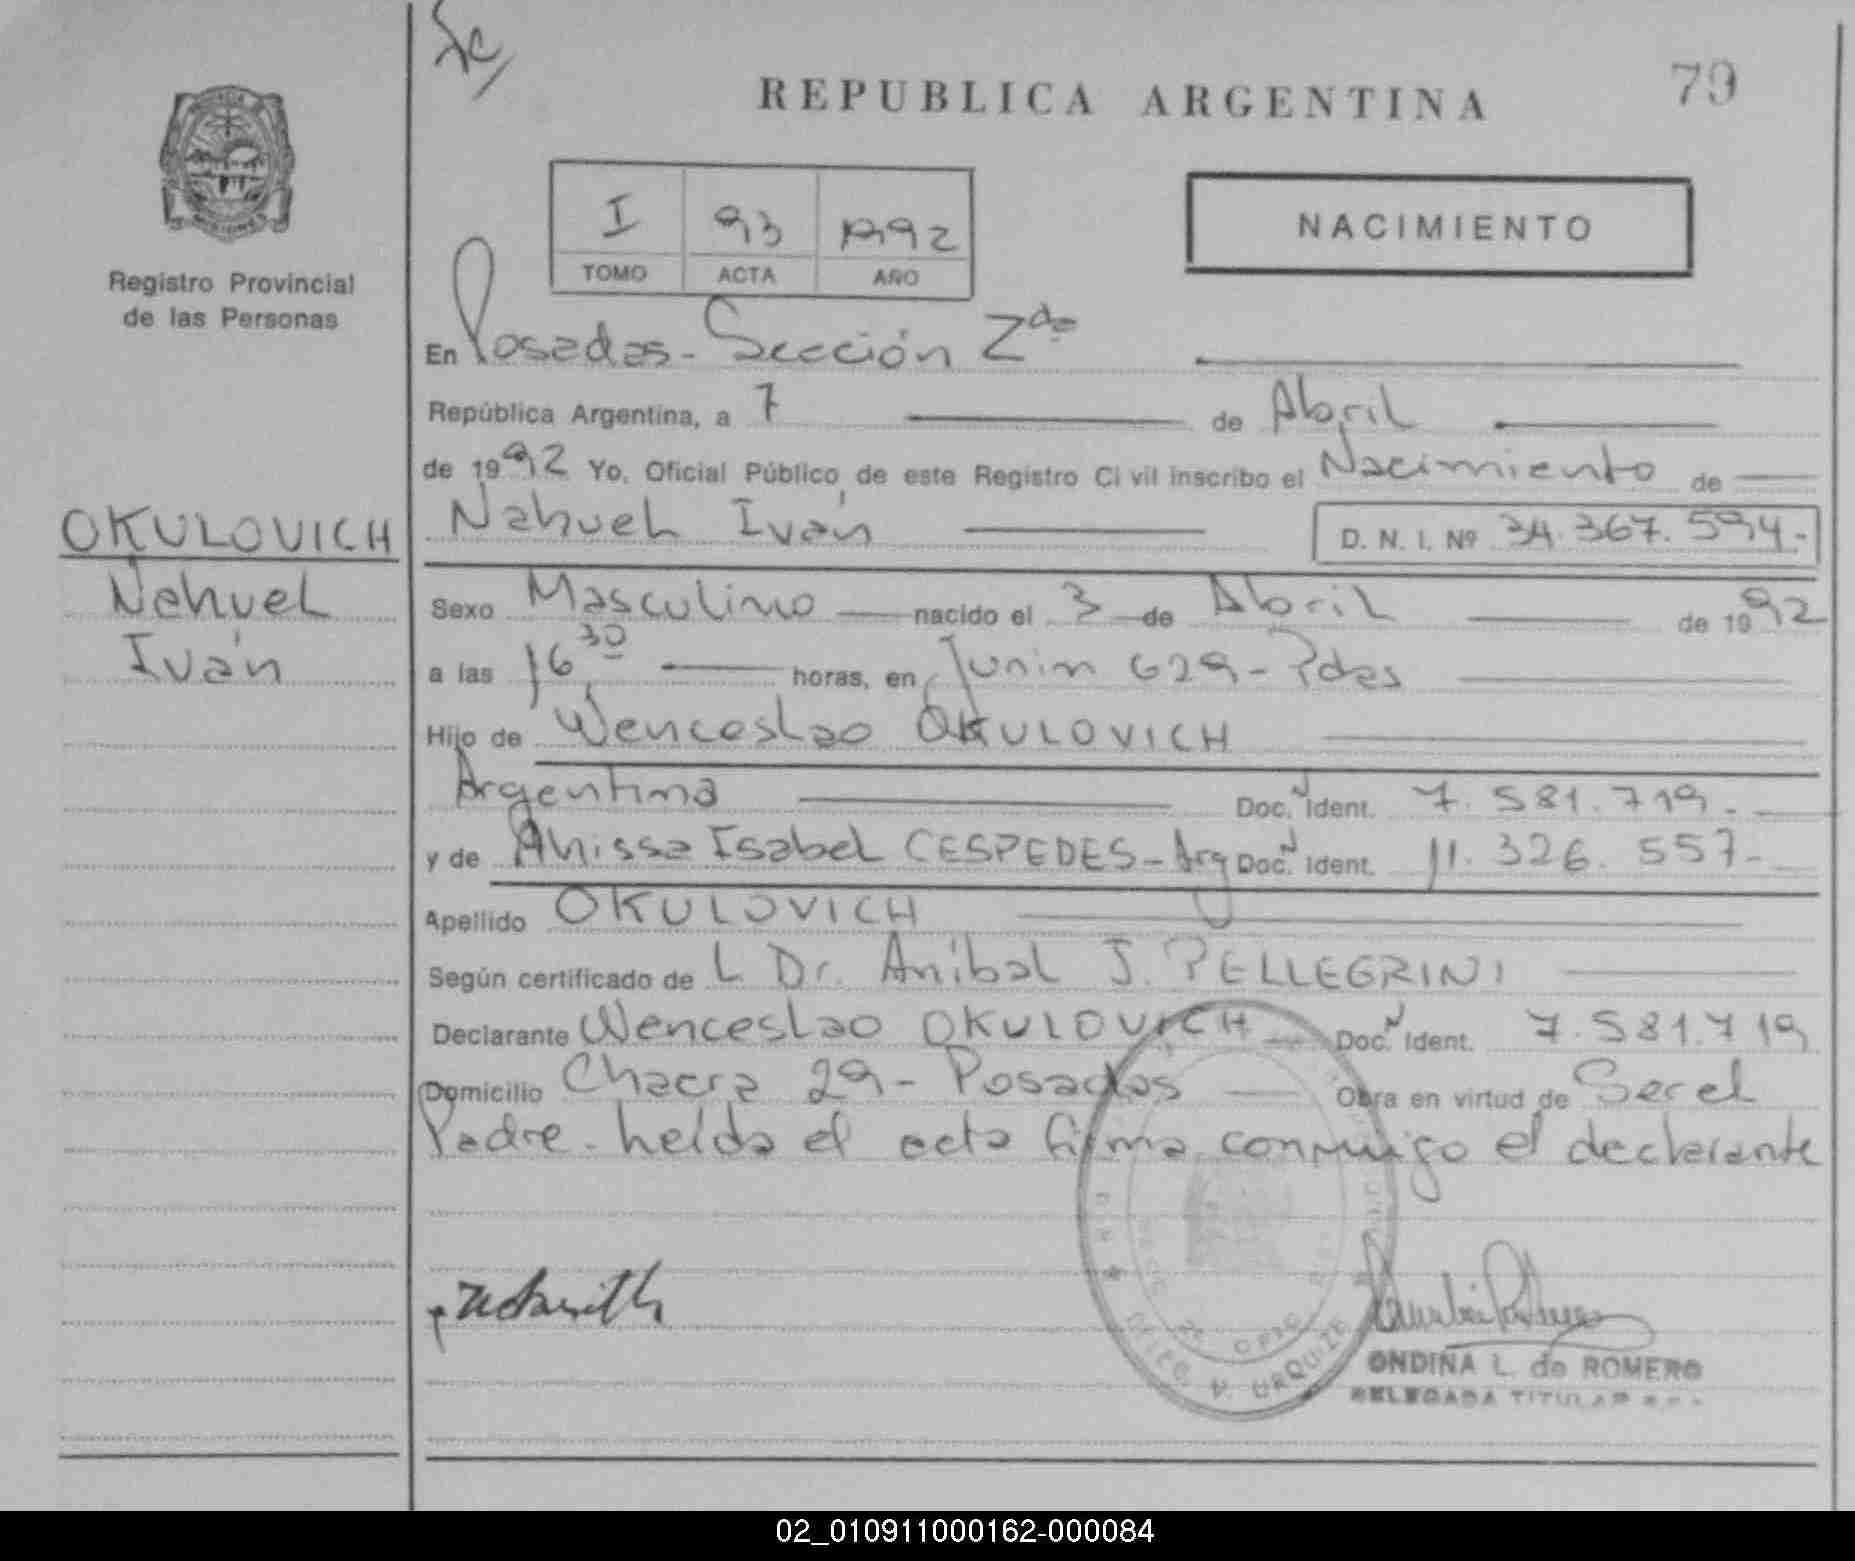 79
REPUBLICA ARGENTINA
I 93 1992
TOMO ACTA AÑO
NACIMIENTO
Registro Provincial
de las Personas
OKULOVICH
Nahuel
Iván
En Posadas - Sección 2da
República Argentina, a 7 de Abril
de 1992 Yo, Oficial Público de este Registro Civil inscribo el Nacimiento de
Nahuel Iván D. N. I. Nº 34.367.594.-
Sexo Masculino nacido el 3 de Abril de 1992
a las 16,30 horas, en Junin 629 - Pdas
Hijo de Wenceslao OKULOVICH
Argentina Doc. Ident. 7.581.719.-
y de Ahissa Isabel CESPEDES - Arg Doc. Ident. 11.326.557-
Apellido OKULOVICH
Según certificado de L Dr. Aníbal J. PELLEGRINI
Declarante Wenceslao OKULOVICH Doc. Ident. 7.581.719
Domicilio Chacra 29 - Posadas Obra en virtud de Ser el
Padre - heída el acta firma conmigo el declarante
URQUIZA
ONDINA L. de ROMERO
DELEGADA TITULAR
02_010911000162-000084